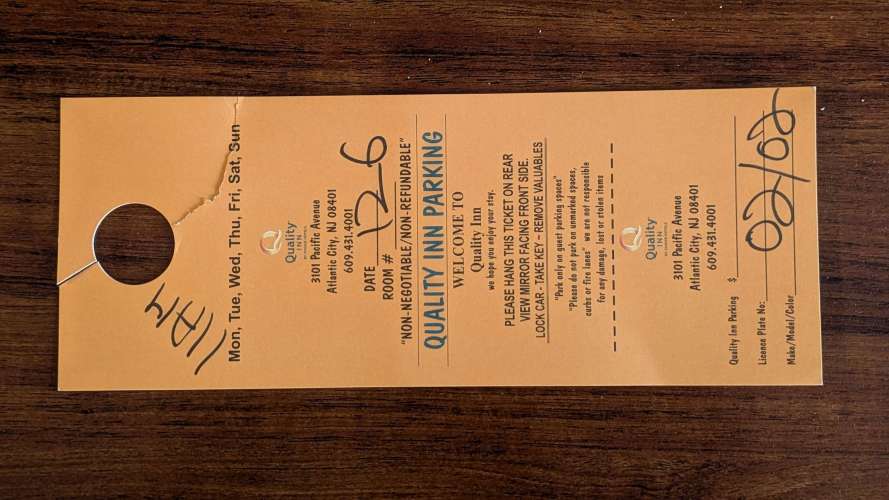 11AM
Mon, Tue, Wed, Thu, Fri, Sat, Sun
Quality
INN
3101 Pacific Avenue
Atlantic City, NJ 08401
609.431.4001
DATE
ROOM # 126
"NON-NEGOTIABLE/NON-REFUNDABLE"
QUALITY INN PARKING
WELCOME TO
Quality Inn
we hope you enjoy your stay.
PLEASE HANG THIS TICKET ON REAR
VIEW MIRROR FACING FRONT SIDE.
LOCK CAR - TAKE KEY - REMOVE VALUABLES
"Park only on guest parking spaces"
"Please do not park on unmarked spaces,
curbs or fire lanes" we are not responsible
for any damage, lost or stolen items
Quality
INN
3101 Pacific Avenue
Atlantic City, NJ 08401
609.431.4001
Quality Inn Parking $
Licence Plate No:
Make/Model/Color